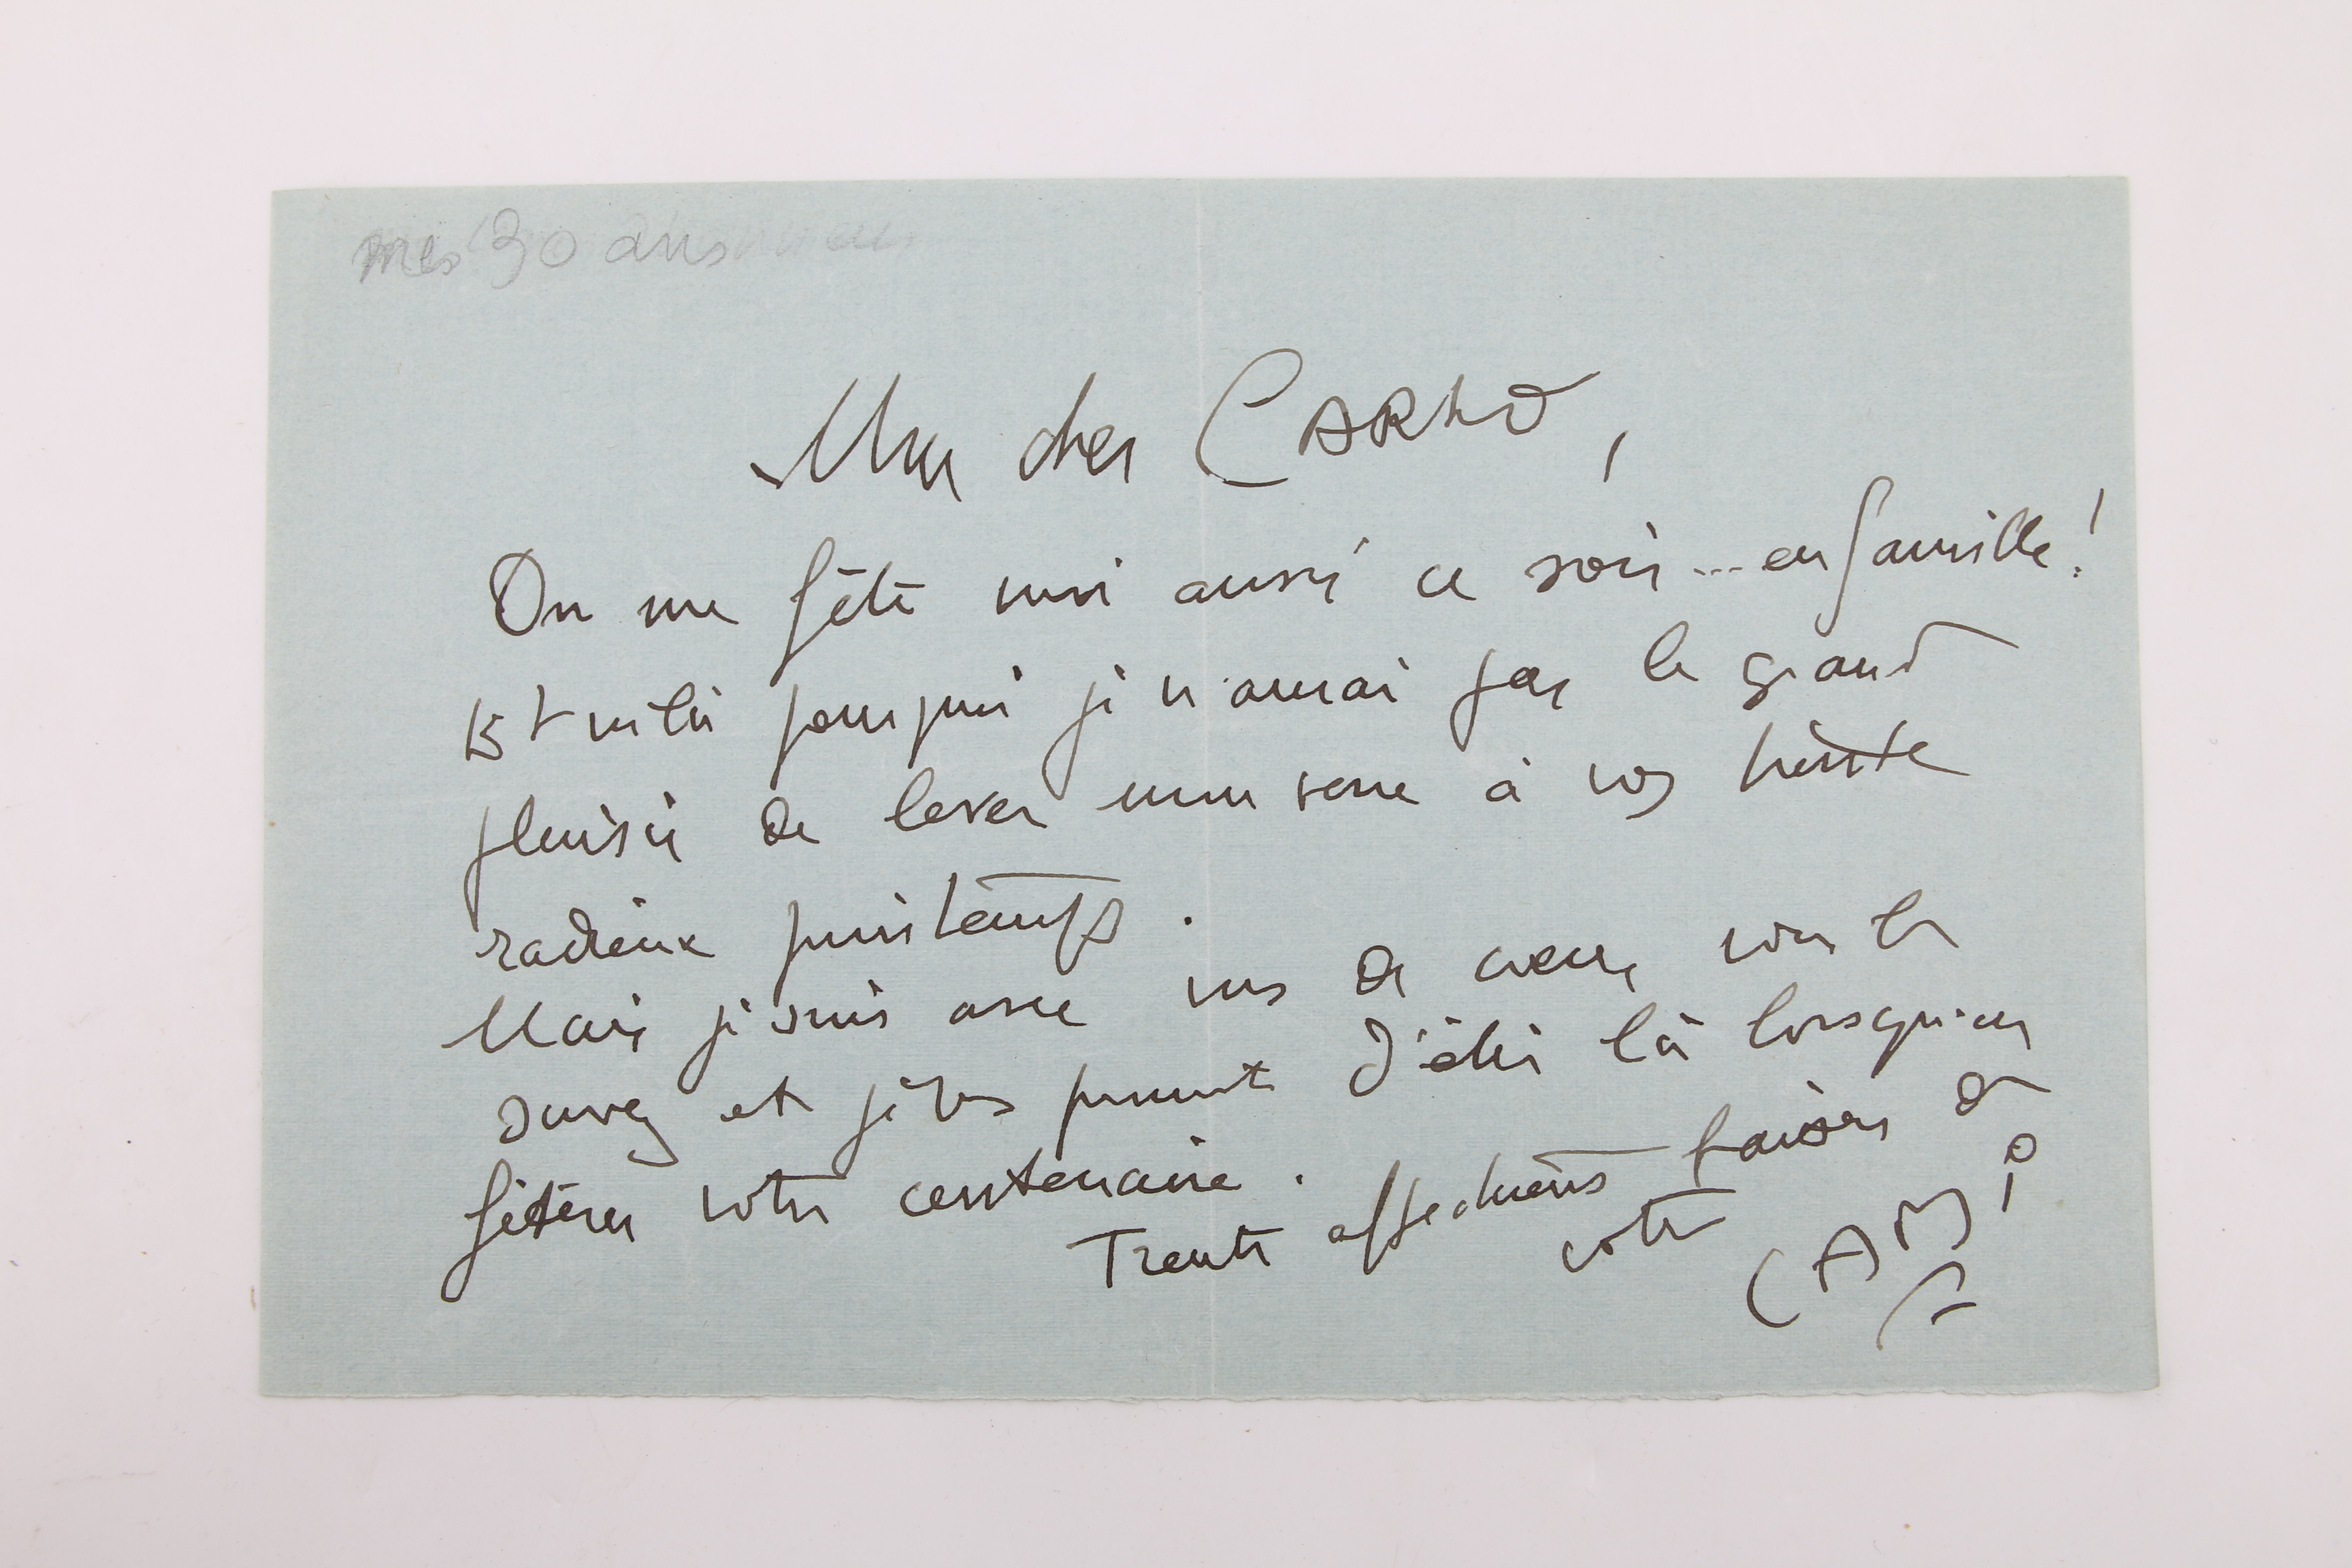 mes 30 ans
Mon cher CARLO,
On me fête moi aussi ce soir... en famille!
Et voilà pourquoi je n'aurai pas le grand
plaisir de lever mon verre à vos trente
radieux printemps.
Mais je suis avec vous de coeur, vous le
savez et je vous promets d'être là lorsqu'on
fêtera votre centenaire.
Trente affectueux baisers de
votre